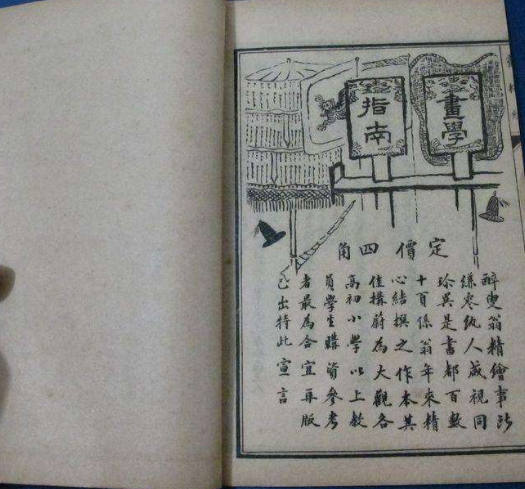 畫學
指南
定價四角
醉叟翁精繪事
縑紈人咸視同
珍異是書都百數
十頁係翁年來精
心結撰之作本其
佳構蔚為大觀各
高初小學以上教
員學生購資參考
者最為合宜再版
已出特此宣言